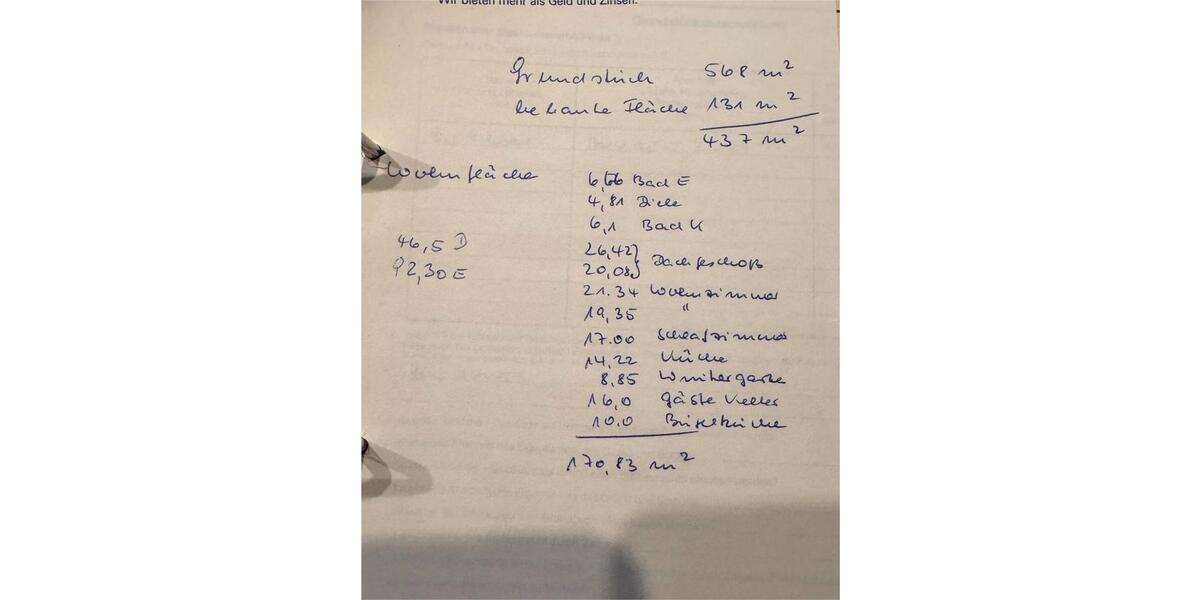 Wir bieten mehr als Geld und Zinsen.
Grundstück 568 m²
bebaute Fläche 131 m²
437 m²
Wohnfläche
6,66 Bad E
4,81 Diele
6,1 Bad K
46,5 D
92,30 E
26,42 } Dachgeschoß
20,08
21.34 Wohnzimmer
19,35 "
17.00 Schlafzimmer
14,22 Küche
8,85 Wintergarten
16,0 Gäste Keller
10.0
170,83 m²